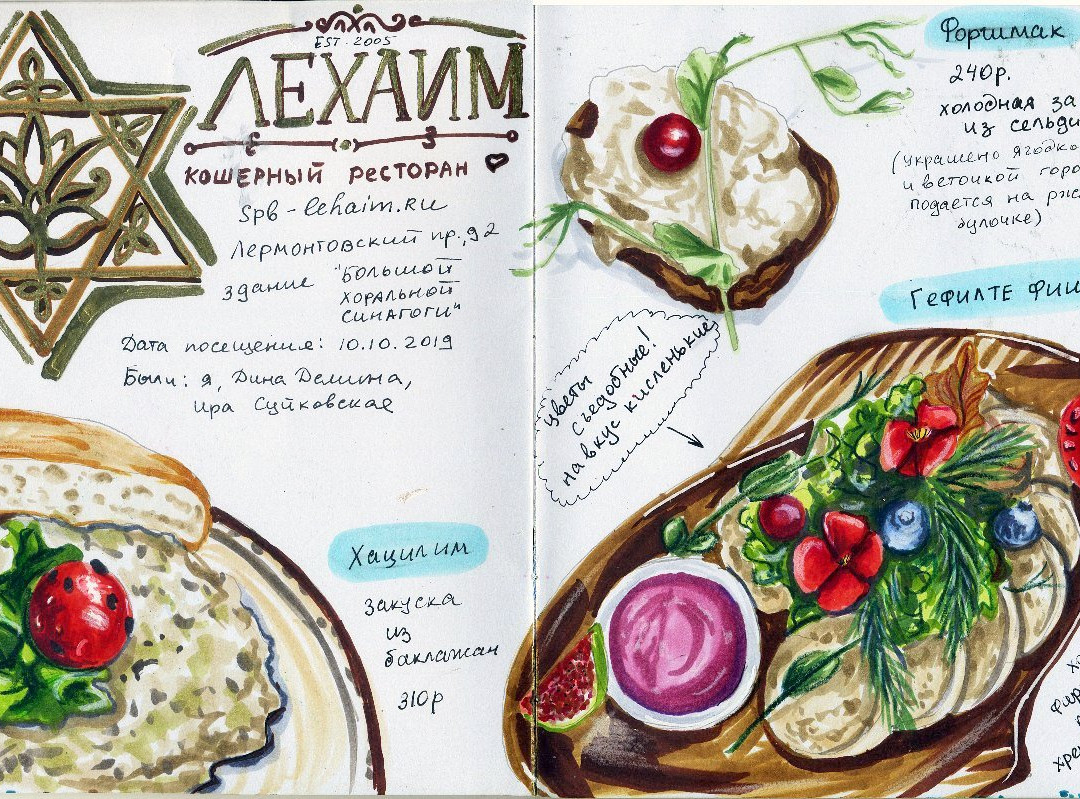 EST. 2005
ЛЕХАИМ
КОШЕРНЫЙ РЕСТОРАН
spb-lehaim.ru
Лермонтовский пр., 92
здание "БОЛЬШОЙ
ХОРАЛЬНОЙ
СИНАГОГИ"
Дата посещения: 10.10.2019
Были: я, Дина Демина,
Ира Суйковская
Хацилим
закуска
из
баклажан
310р
Форшмак
240р.
холодная за
из сельди
(украшено ягодко
и веточкой горо
подается на рж
булочке)
цветы
съедобные!
на вкус кисленькие
ГЕФИЛТЕ ФИШ
хрен